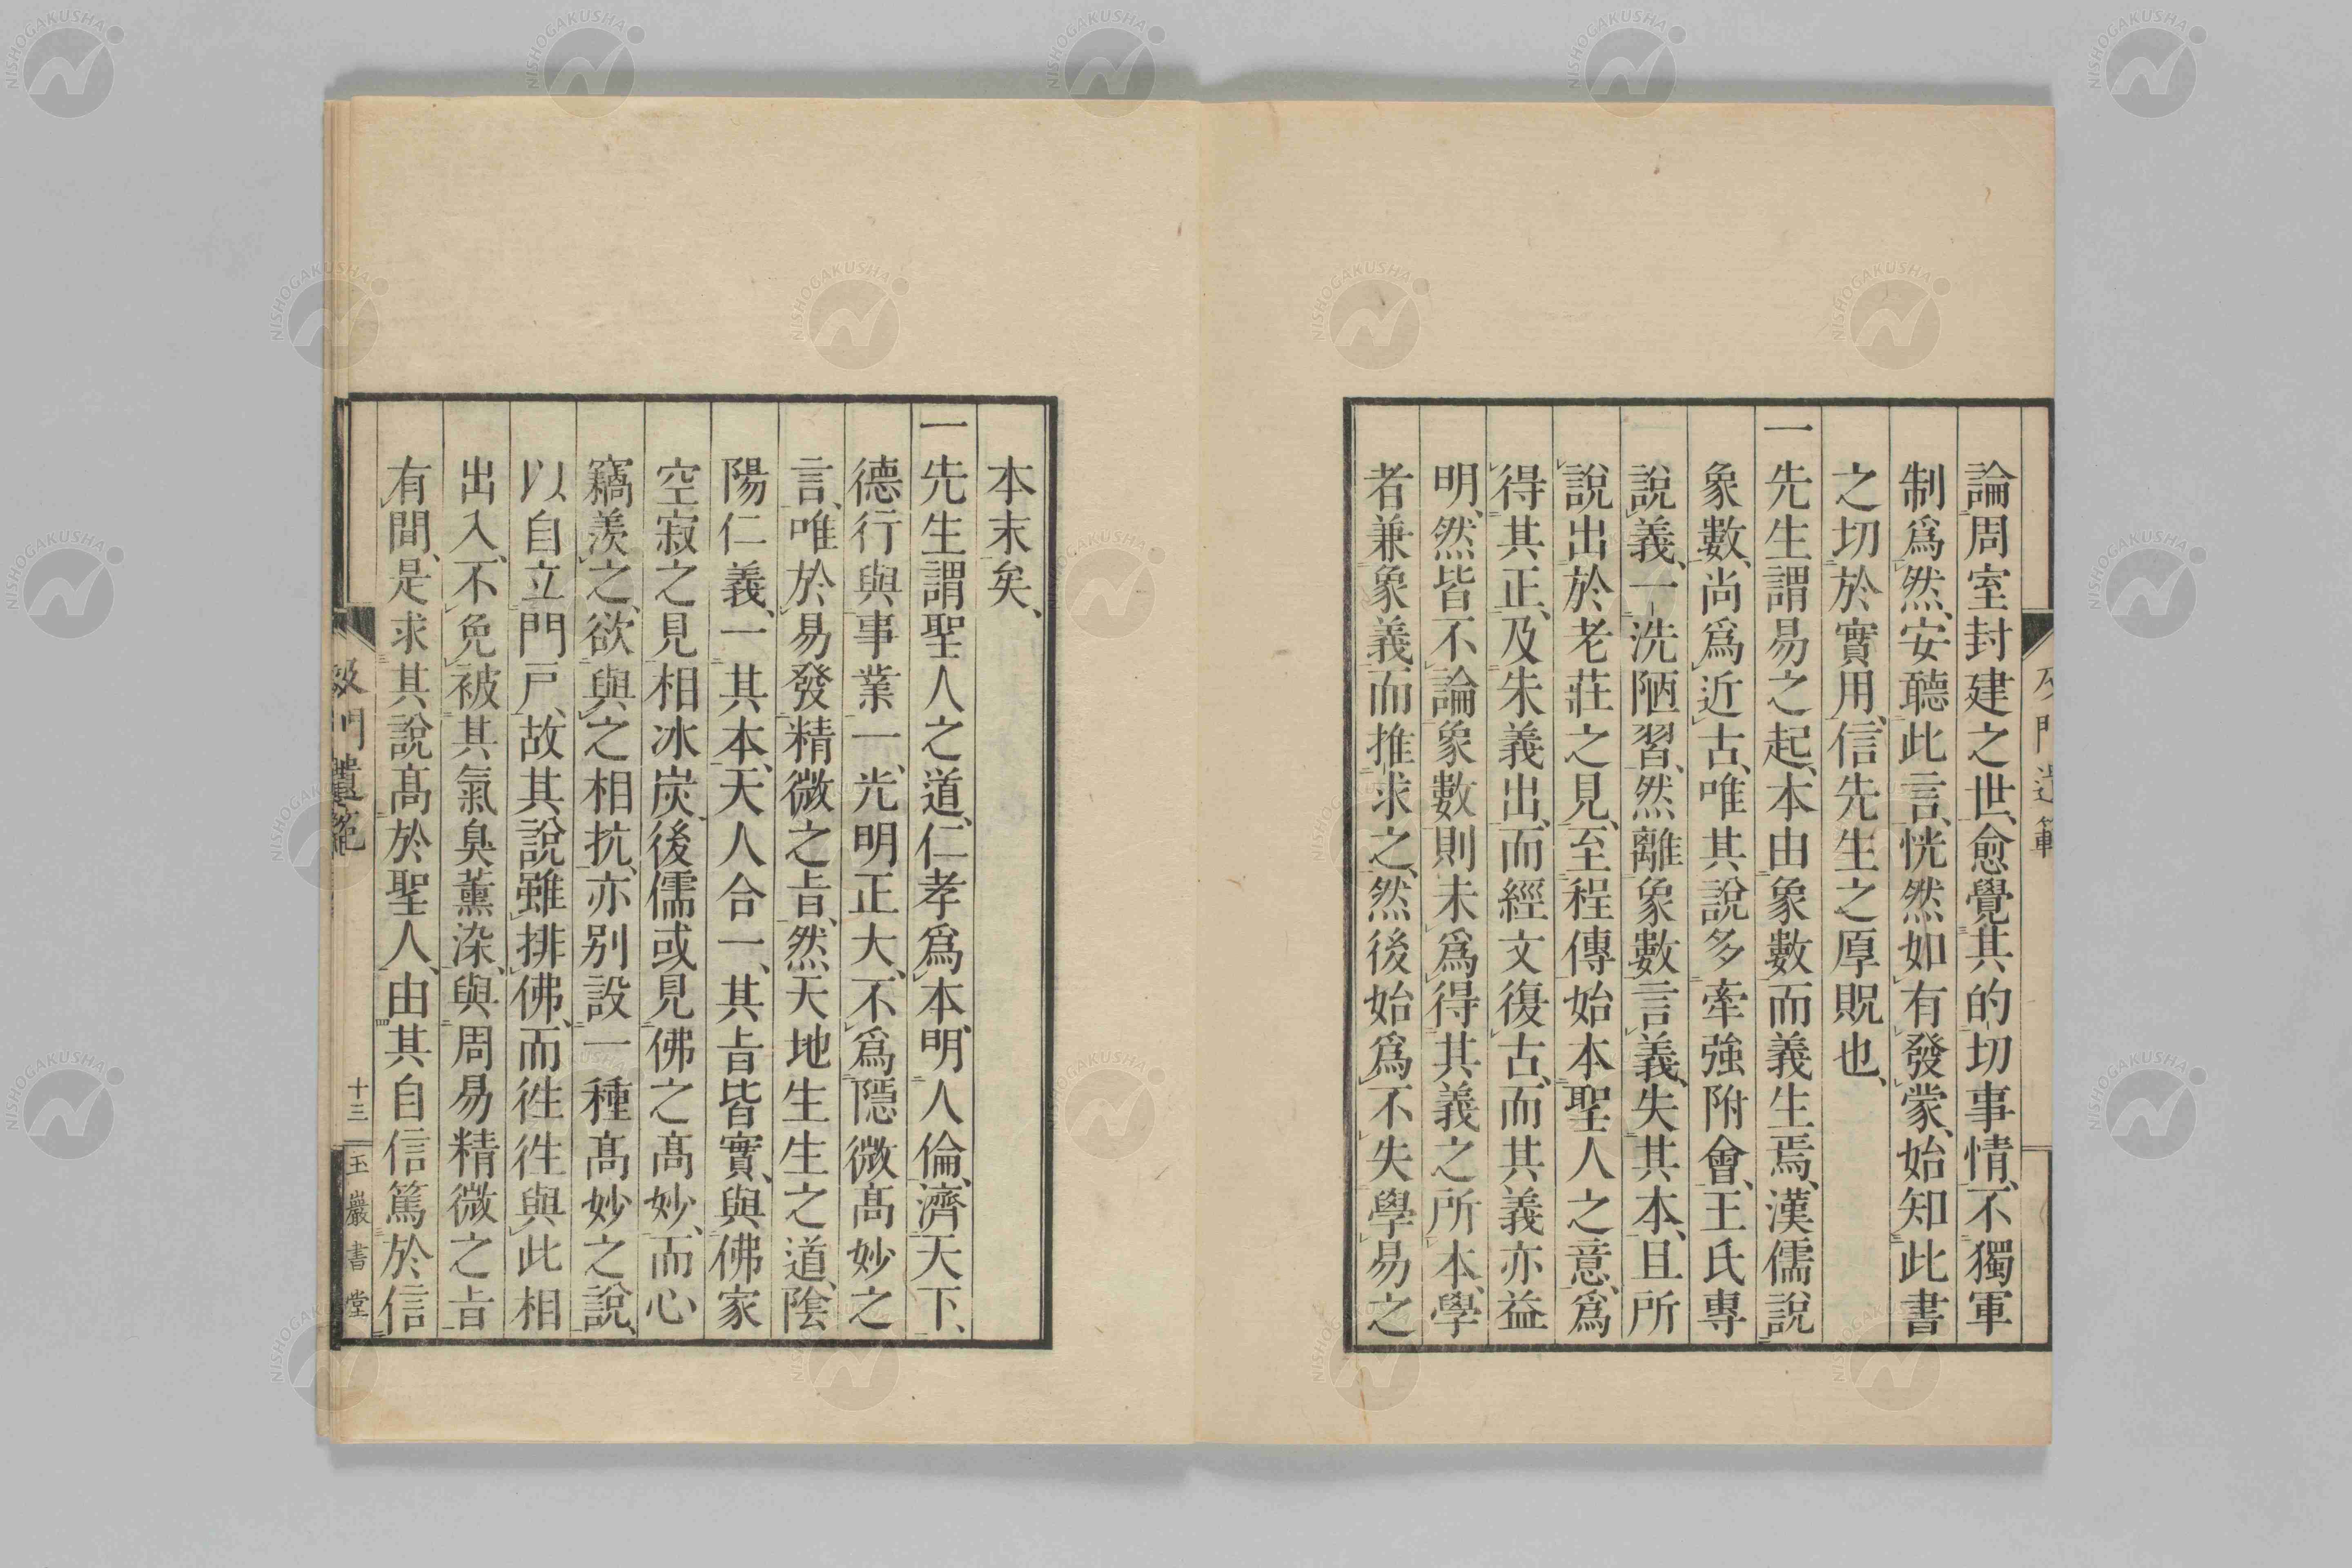 論周室封建之世、愈覺其的切事情、不獨軍
制爲然、安聽此言、恍然如有發蒙、始知此書
之切於實用、信先生之厚貺也、
一先生謂易之起、本由象數而義生焉、漢儒說
象數、尚爲近古、唯其說多牽強附會、王氏專
說義、一洗陋習、然離象數言義、失其本、且所
說出於老莊之見、至程傳始本聖人之意、爲
得其正、及朱義出、而經文復古、而其義亦益
明、然皆不論象數、則未爲得其義之所本、學
者兼象義而推求之、然後始爲不失學易之
本末矣、
一先生謂聖人之道、仁孝爲本、明人倫、濟天下、
德行與事業一、光明正大、不爲隱微高妙之
言、唯於易發精微之㫖、然天地生生之道、陰
陽仁義、一其本、天人合一、其㫖皆實、與佛家
空寂之見相冰炭、後儒或見佛之高妙、而心
竊羨之、欲與之相抗、亦別設一種高妙之說、
以自立門戶、故其說雖排佛、而往往與此相
出入、不免被其氣臭薰染、與周易精微之㫖
有間、是求其說高於聖人、由其自信篤於信
及門遺範
十三
玉巖書堂
NISHOGAKUSHA